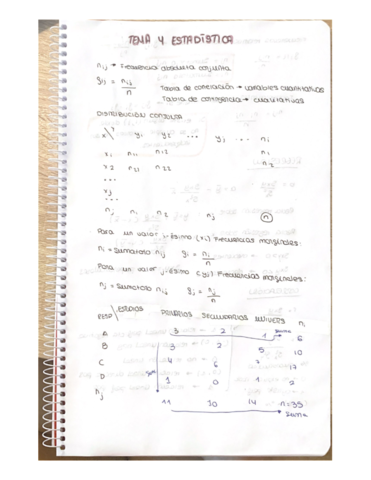 TEMA 4 ESTADÍSTICA
nij → Frecuencia absoluta conjunta
gij = nij / n
Tabla de correlación → variables cuantitativas
Tabla de contingencia → cualitativas
DISTRIBUCIÓN CONJUNTA
y1 y2 ... yj ... ni
x1 n11 n12 n1
x2 n21 n22 n2
...
xj
...
nj n1 n2 nj n
Para un valor i-ésimo (xi) Frecuencias marginales:
ni = Sumatorio nij gi = ni / n
Para un valor j-ésimo (yj) Frecuencias marginales:
nj = Sumatorio nij gj = nj / n
RESP \ ESTUDIOS PRIMARIOS SECUNDARIOS UNIVERS ni
A 3 2 1 suma 6
B 3 2 5 10
C 4 6 7 17
D 1 0 1 2
nj 11 10 14 n=35
suma